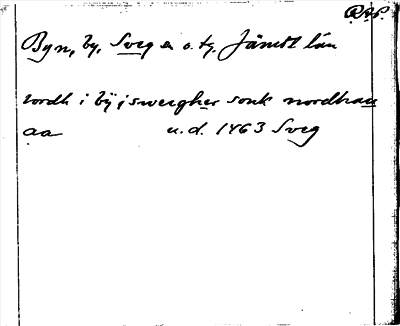 RAP.
Byn, by, Sveg sn o. tg. Jämtl län
iordh i bÿ i sweegher sonk nordhan
aa u.d. 1463 Sveg